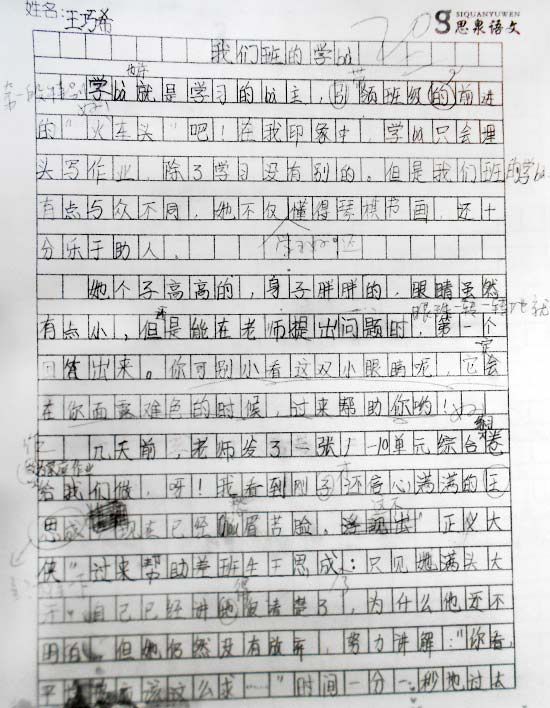 姓名:王巧希
SIQUANYUWEN
思泉语文
我们班的学霸
学霸就是学习的霸主，引领班级的前进
的"火车头"吧！在我印象中，学霸只会埋
头写作业，除了学习没有别的。但是我们班的学霸
有点与众不同，她不仅懂得琴棋书画，还十
分乐于助人。
她个子高高的，身子胖胖的，眼睛虽然
眼珠一转一转地就
有点小，但是能在老师提出问题时，第一个
回答出来。你可别小看这双小眼睛呢，它会
在你面露难色的时候，过来帮助你哟！
几天前，老师发了一张1-10单元综合卷
给我们做，呀！我看到刚才还信心满满的王
思成 现在已经 眉苦脸。 "正义大
侠"过来帮助差班生王思成：只见她满头大
汗。自己已经讲得很清楚了，为什么他还不
明白。但她仍然没有放弃，努力讲解："你看，
应该这么求……"时间一分一秒地过去